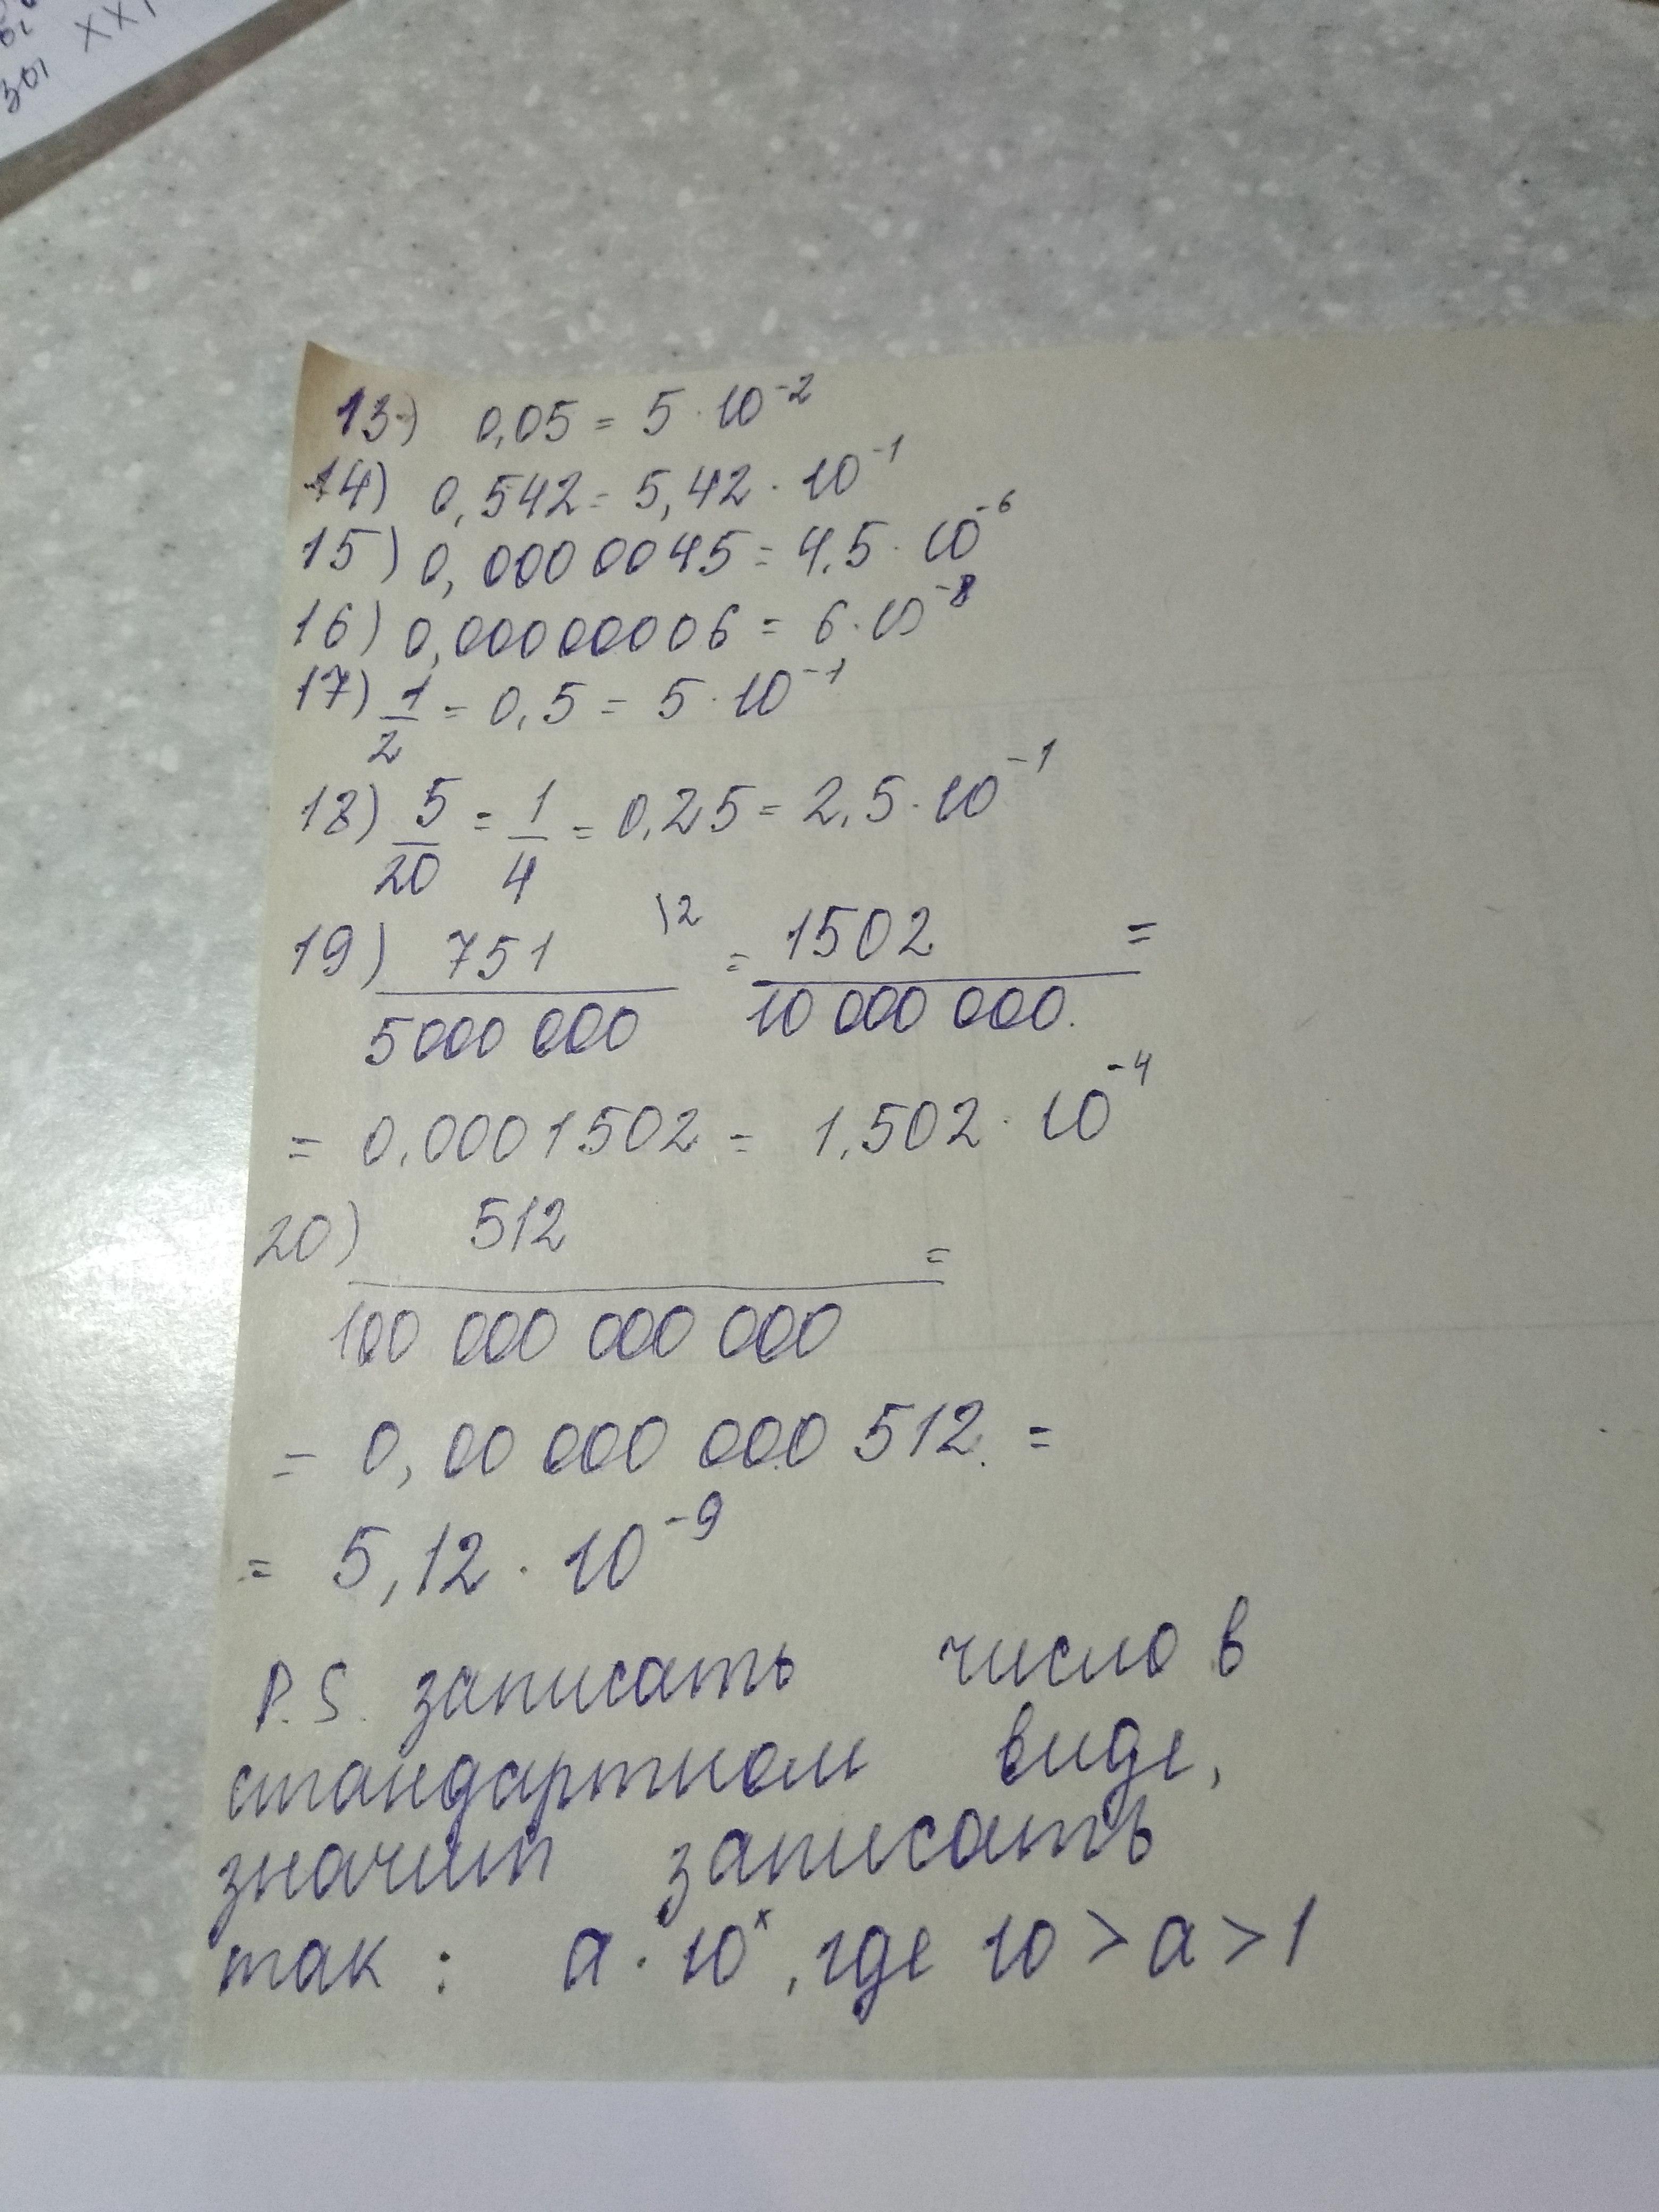 XXI
301
13) 0,05 = 5 · 10⁻²
14) 0,542 = 5,42 · 10⁻¹
15) 0,0000045 = 4,5 · 10⁻⁶
16) 0,00000006 = 6 · 10⁻⁸
17) 1/2 = 0,5 = 5 · 10⁻¹
18) 5/20 = 1/4 = 0,25 = 2,5 · 10⁻¹
19) 751/5000 000 \2 = 1502/10 000 000 =
= 0,0001502 = 1,502 · 10⁻⁴
20) 512/100 000 000 000 =
= 0,00 000 000 512 =
= 5,12 · 10⁻⁹
P.S. записать число в
стандартном виде,
значит записать
так: a · 10ˣ, где 10 > a > 1